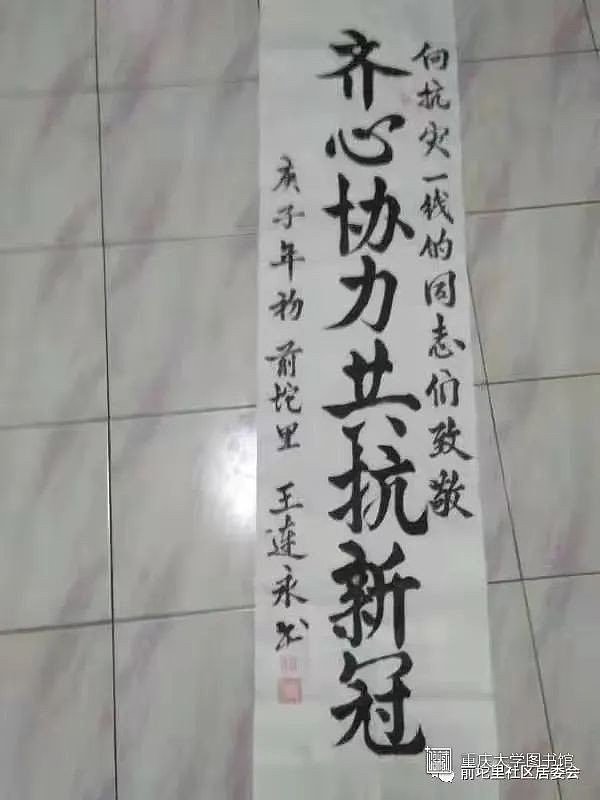 向抗灾一线的同志们致敬
齐心协力共抗新冠
庚子年初 前坨里 王连永书
重庆大学图书馆
前坨里社区居委会